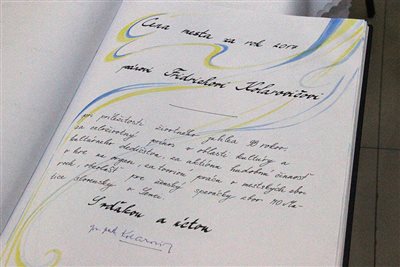 Cena mesta za rok 2017
pánovi Fridrichovi Kolarovičovi
pri príležitosti životného jubilea rokov,
za celoživotný prínos v oblasti kultúry a
kultúrneho dedičstva, za aktívnu hudobnú činnosť
v hre na organ, za tvorivú prácu v mestských zbo-
roch, pre ženský spevácky zbor MO Ma-
tice slovenskej v Senci.
S vďakou a úctou